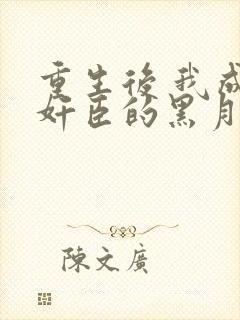 重生後我成
奸臣的黑月
陳文廣